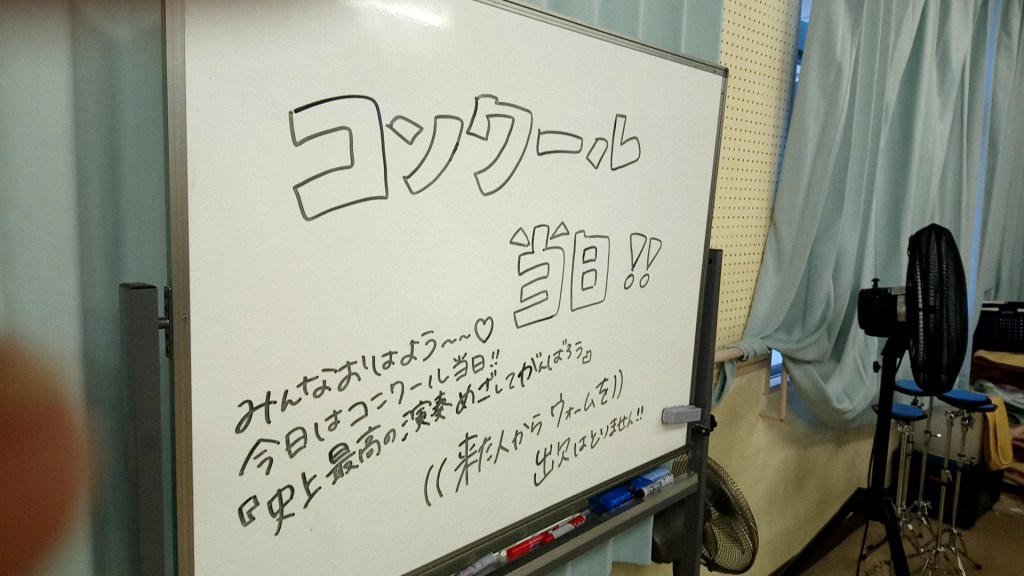 コンクール
当日!!
みんなおはよう～～♡
今日はコンクール当日!!
『史上最高の演奏めざしてがんばろう』
((来た人からウォームを))
出欠はとりません!!